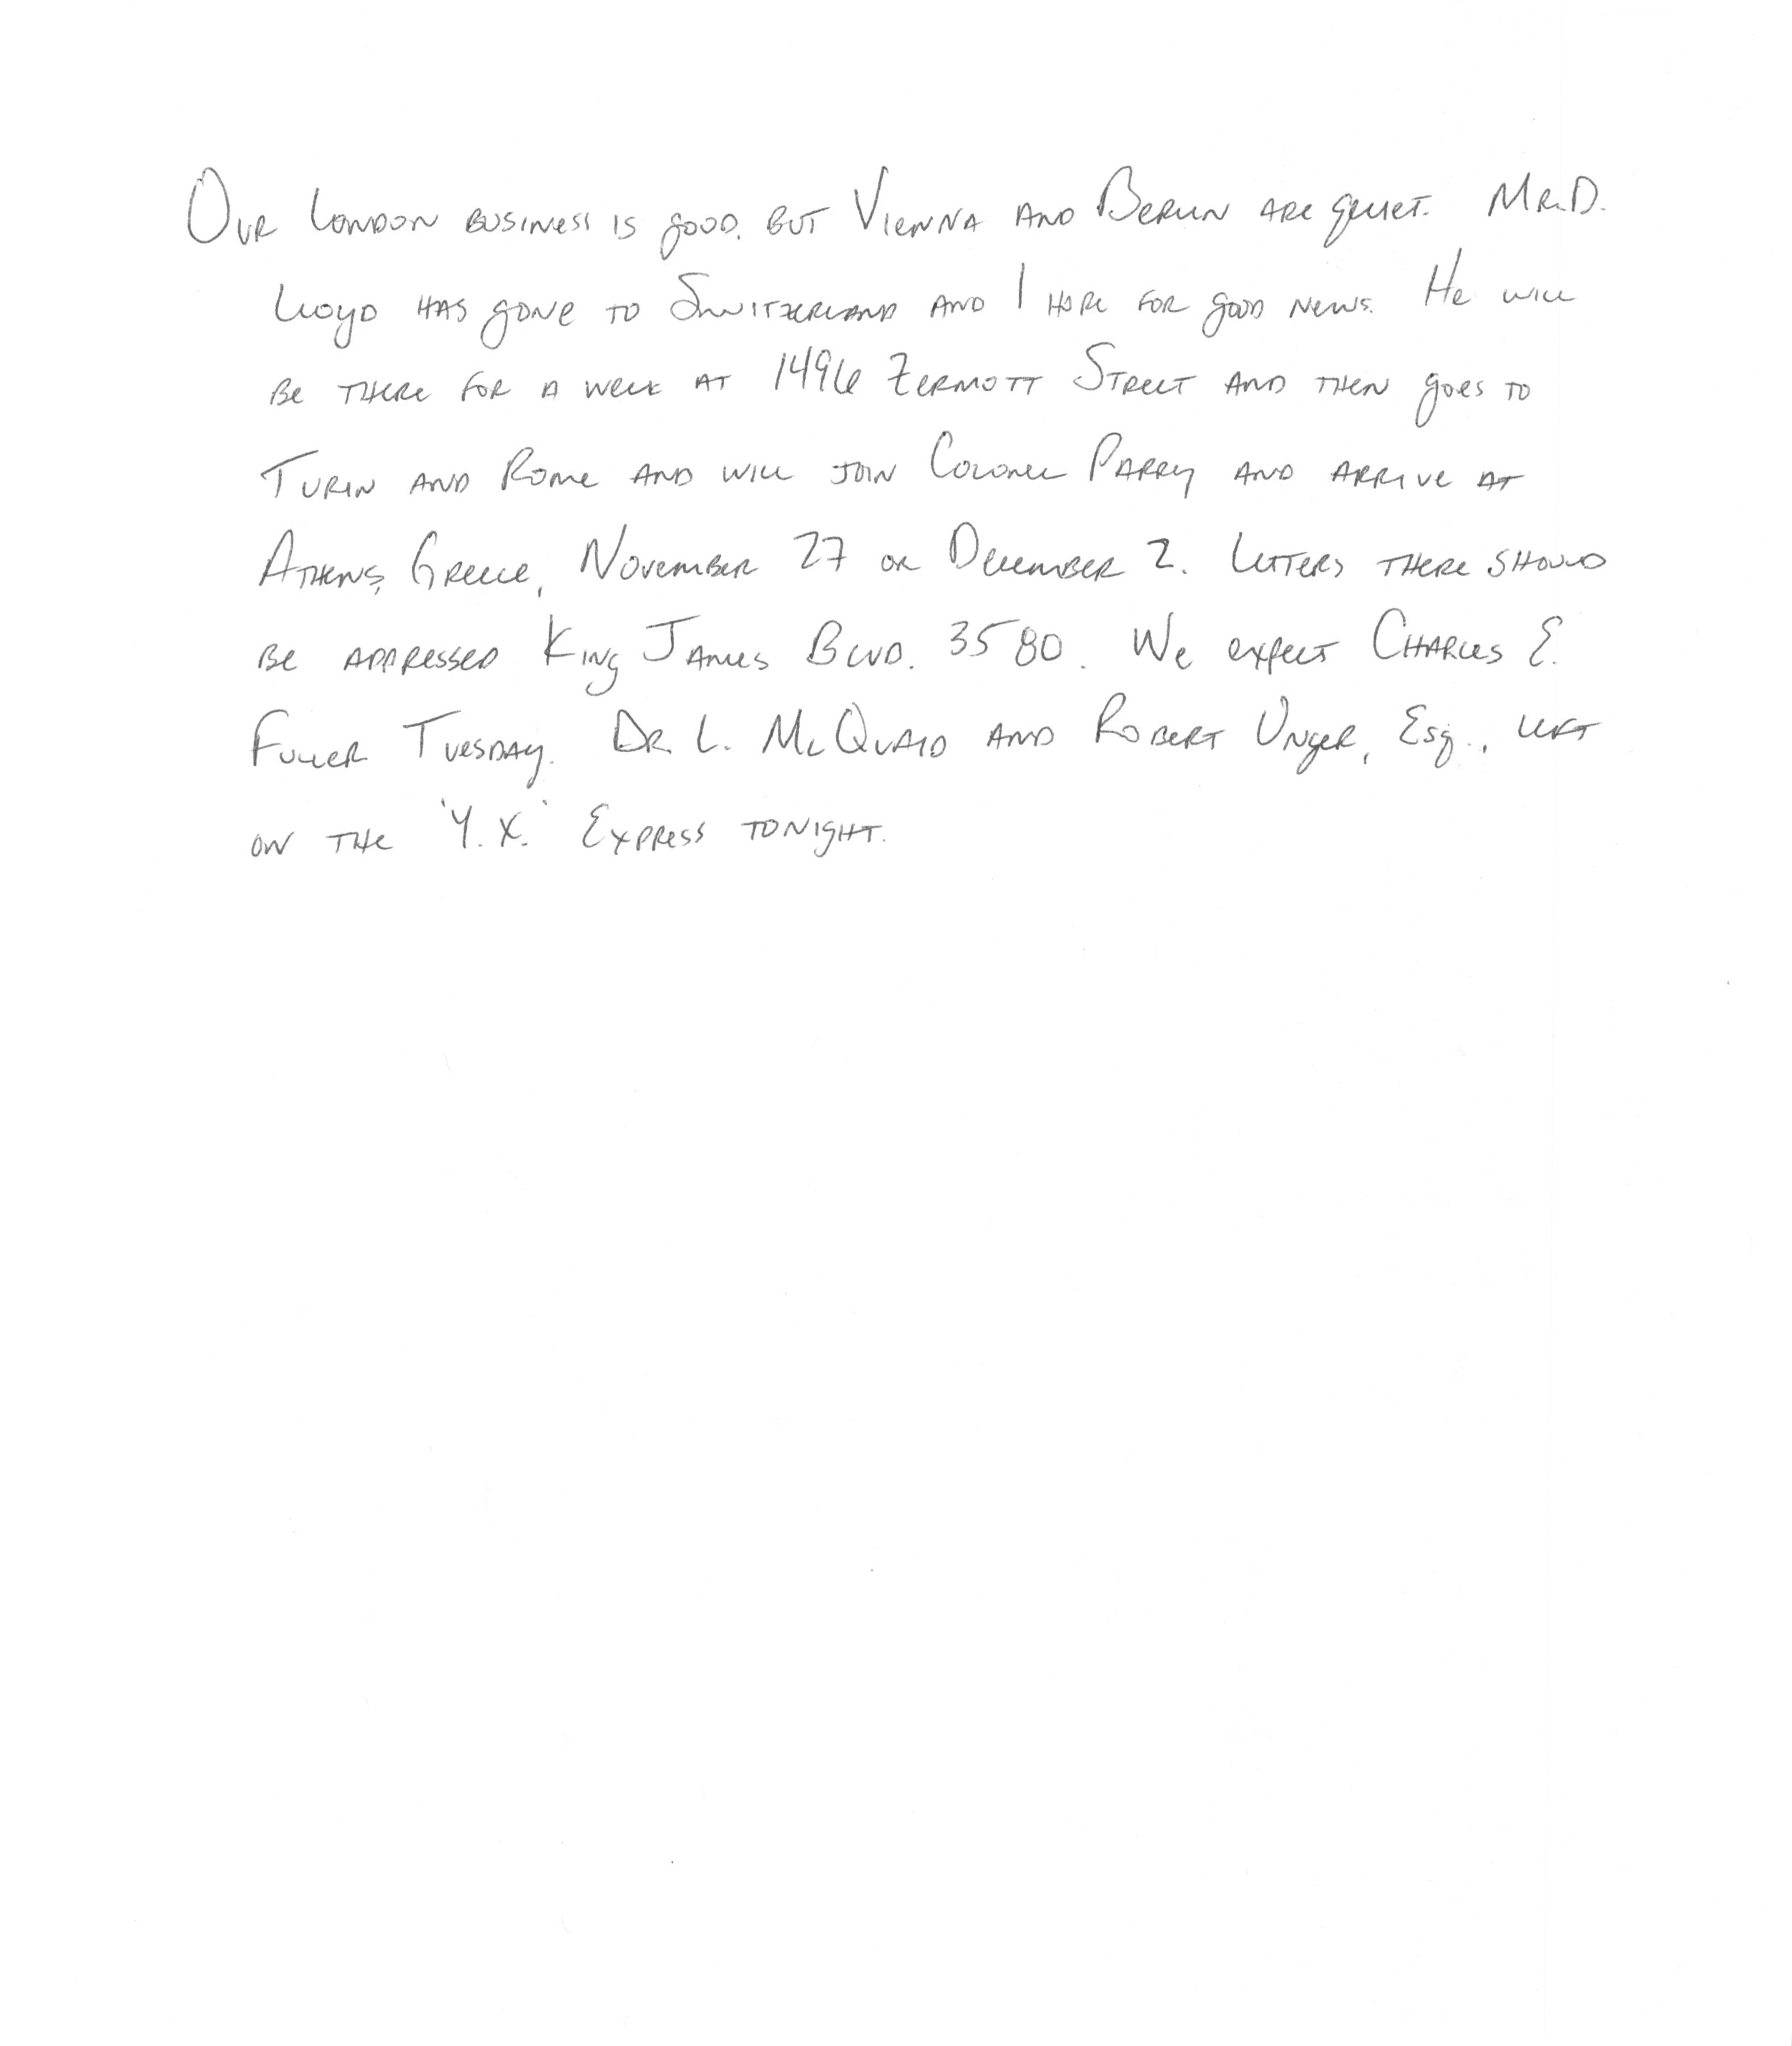 Our London business is good, but Vienna and Berlin are quiet. Mr. D.
Lloyd has gone to Switzerland and I hope for good news. He will
be there for a week at 1496 Zermott Street and then goes to
Turin and Rome and will join Colonel Parry and arrive at
Athens, Greece, November 27 or December 2. Letters there should
be addressed King James Blvd. 3580. We expect Charles E.
Fuller Tuesday. Dr. L. McQuaid and Robert Unger, Esq., left
on the 'Y.X.' Express tonight.